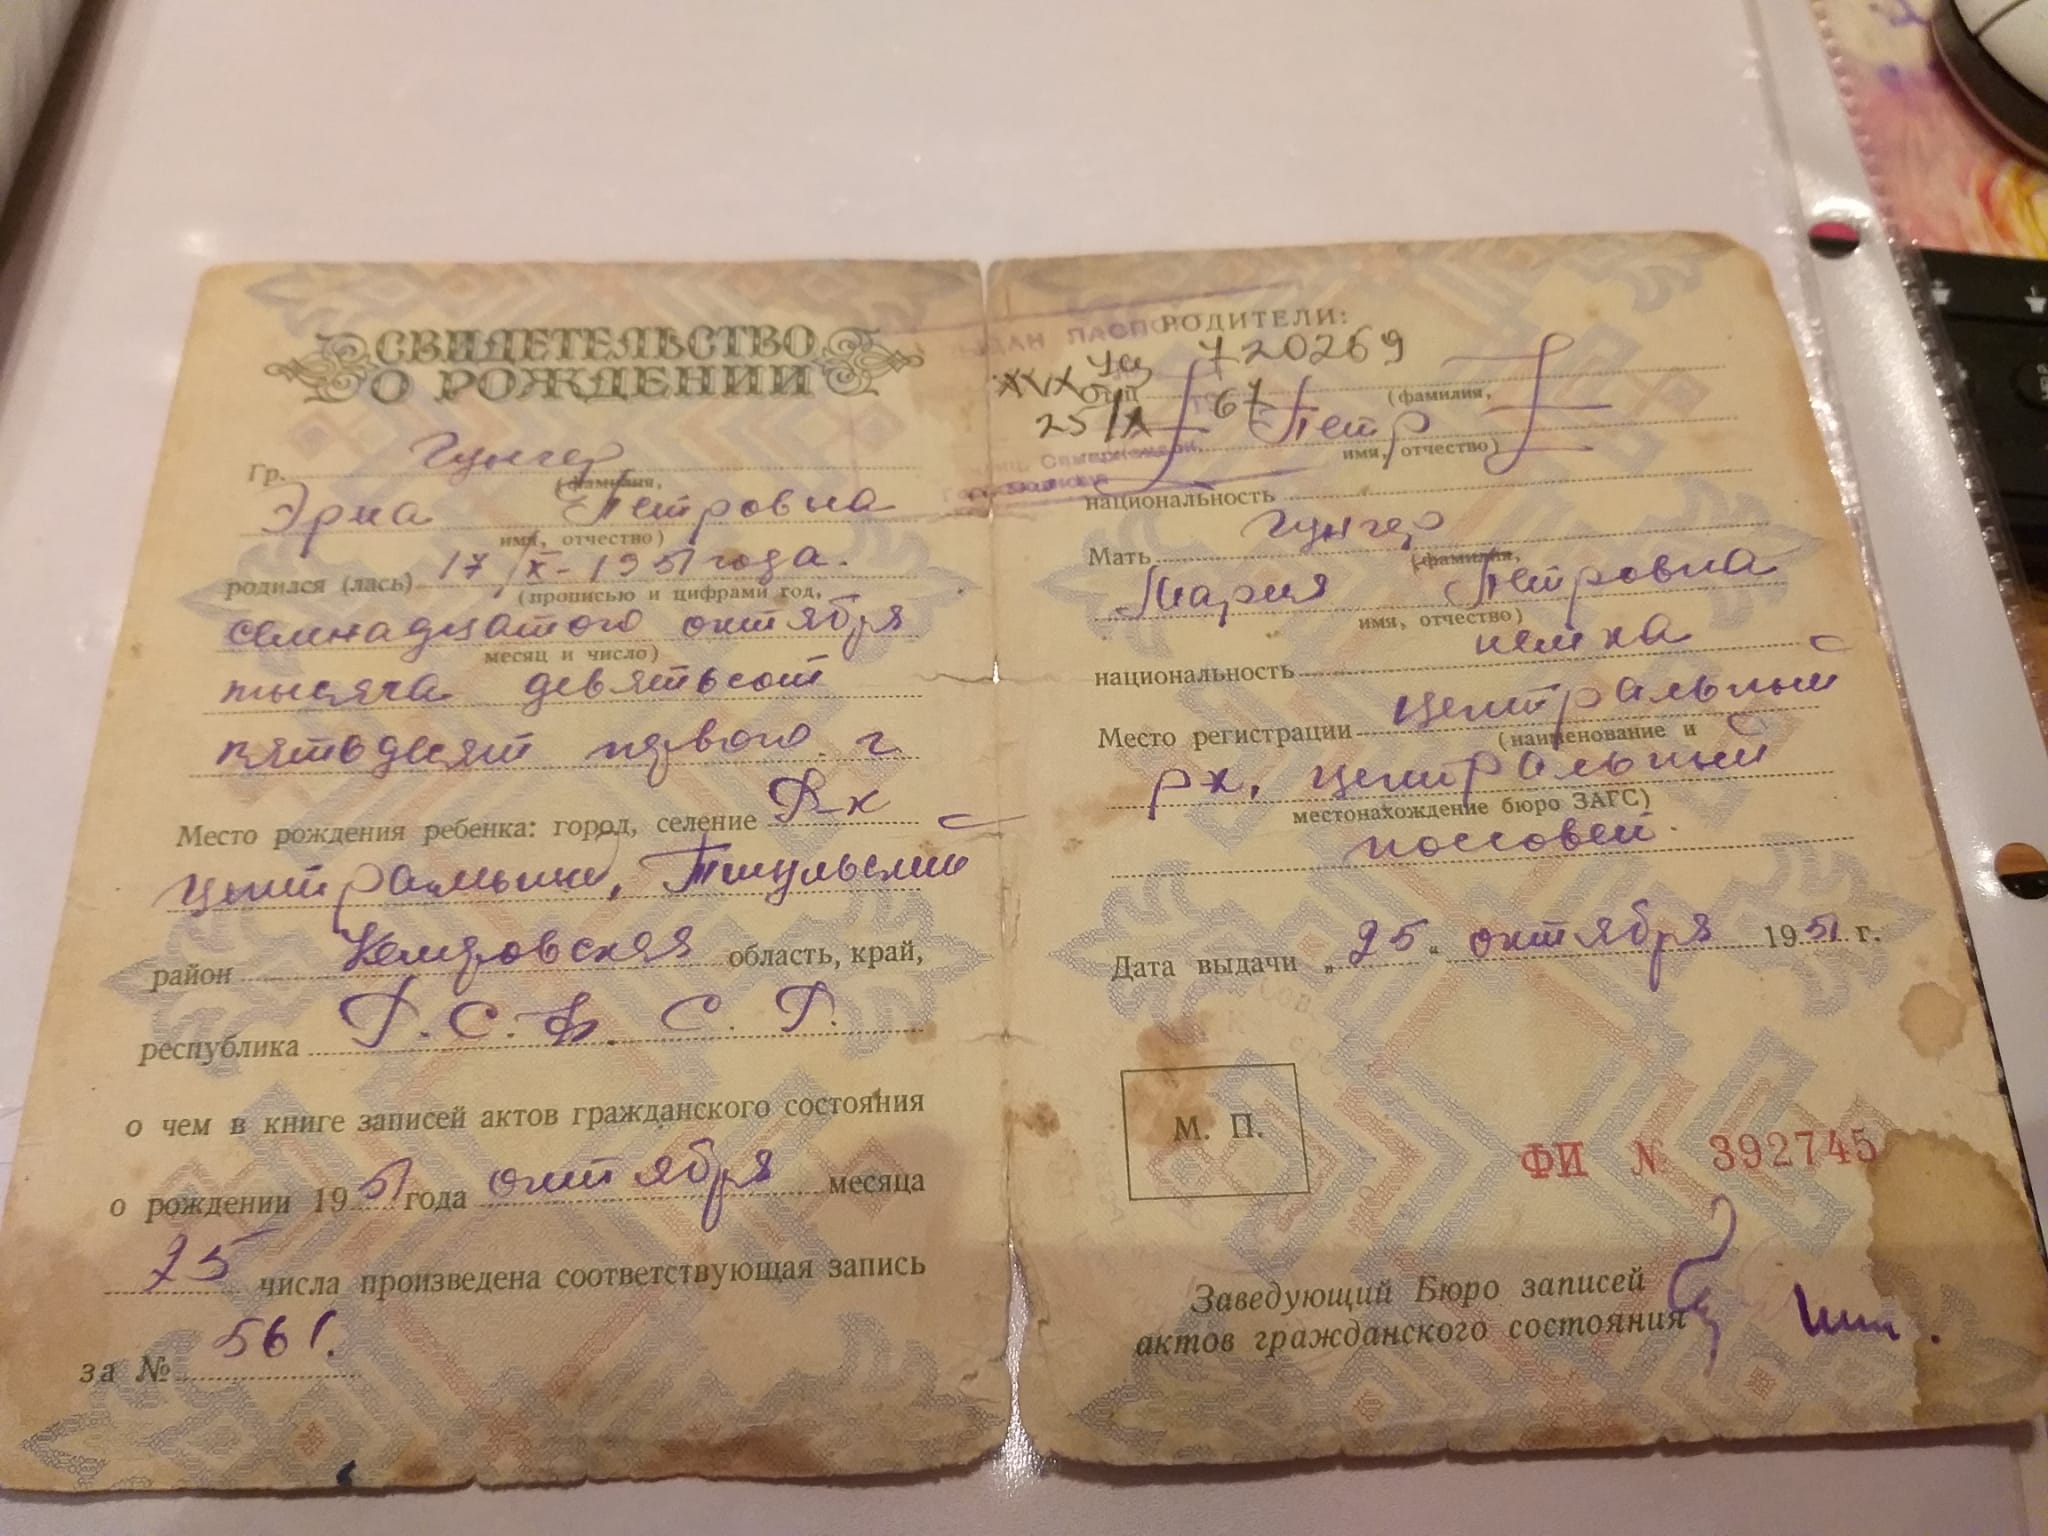 СВИДЕТЕЛЬСТВО
О РОЖДЕНИИ
Гр. Гунгер
(фамилия,
Эрна Петровна
имя, отчество)
родился (лась) 17/X-1951 года.
(прописью и цифрами год,
семнадцатого октября
месяц и число)
тысяча девятьсот
пятьдесят первого г
Место рождения ребенка: город, селение Р-к
Центральный, Тисульский
район Кемеровская область, край,
республика Р.С.Ф.С.Р.
о чем в книге записей актов гражданского состояния
о рождении 1951 года октября месяца
25 числа произведена соответствующая запись
за № 561.
РОДИТЕЛИ:
ВЫДАН ПАСПОРТ
XVX 720269
Отец
(фамилия,
25/X 67 Петр
имя, отчество)
национальность
Мать Гунгер
(фамилия,
Мария Петровна
имя, отчество)
национальность немка
Место регистрации Центральный
(наименование и
рк, Центральный
местонахождение бюро ЗАГС)
поссовет.
Дата выдачи „25“ октября 1951 г.
М. П.
ФИ № 392745
Заведующий Бюро записей
актов гражданского состояния